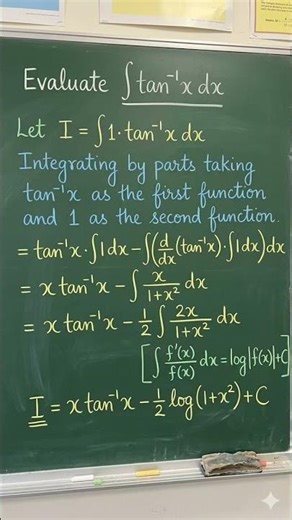 Evaluate ∫tan⁻¹x dx
Let I = ∫1·tan⁻¹x dx
Integrating by parts taking
tan⁻¹x as the first function
and 1 as the second function.
= tan⁻¹x·∫1dx − ∫(d/dx(tan⁻¹x)·∫1dx)dx
= x tan⁻¹x − ∫ x/(1+x²) dx
= x tan⁻¹x − 1/2 ∫ 2x/(1+x²) dx
[∫ f'(x)/f(x) dx = log|f(x)|+C]
I = x tan⁻¹x − 1/2 log(1+x²) + C